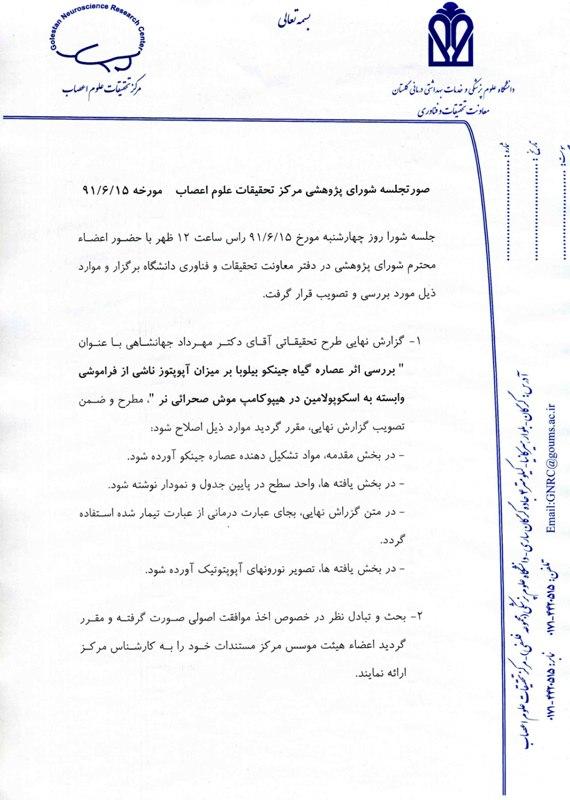 بسمه تعالی
Golestan Neuroscience Research Center
مرکز تحقیقات علوم اعصاب
دانشگاه علوم پزشکی و خدمات بهداشتی درمانی گلستان
معاونت تحقیقات و فناوری
شماره:
تاریخ:
پیوست:
صورتجلسه شورای پژوهشی مرکز تحقیقات علوم اعصاب مورخه ۹۱/۶/۱۵
جلسه شورا روز چهارشنبه مورخ ۹۱/۶/۱۵ راس ساعت ۱۲ ظهر با حضور اعضاء
محترم شورای پژوهشی در دفتر معاونت تحقیقات و فناوری دانشگاه برگزار و موارد
ذیل مورد بررسی و تصویب قرار گرفت.
۱- گزارش نهایی طرح تحقیقاتی آقای دکتر مهرداد جهانشاهی با عنوان
" بررسی اثر عصاره گیاه جینکو بیلوبا بر میزان آپوپتوز ناشی از فراموشی
وابسته به اسکوپولامین در هیپوکامپ موش صحرائی نر "، مطرح و ضمن
تصویب گزارش نهایی، مقرر گردید موارد ذیل اصلاح شود:
- در بخش مقدمه، مواد تشکیل دهنده عصاره جینکو آورده شود.
- در بخش یافته ها، واحد سطح در پایین جدول و نمودار نوشته شود.
- در متن گزراش نهایی، بجای عبارت درمانی از عبارت تیمار شده استفاده
گردد.
- در بخش یافته ها، تصویر نورونهای آپوپتوتیک آورده شود.
۲- بحث و تبادل نظر در خصوص اخذ موافقت اصولی صورت گرفته و مقرر
گردید اعضاء هیئت موسس مرکز مستندات خود را به کارشناس مرکز
ارائه نمایند.
آدرس: گرگان- جاده گرگان ساری- دانشگاه علوم پزشکی - مرکز تحقیقات علوم اعصاب
تلفن: ۴۴۲۰۵۱۵-۰۱۷۱ نمابر: ۴۴۲۰۵۱۵-۰۱۷۱ Email:GNRC@goums.ac.ir